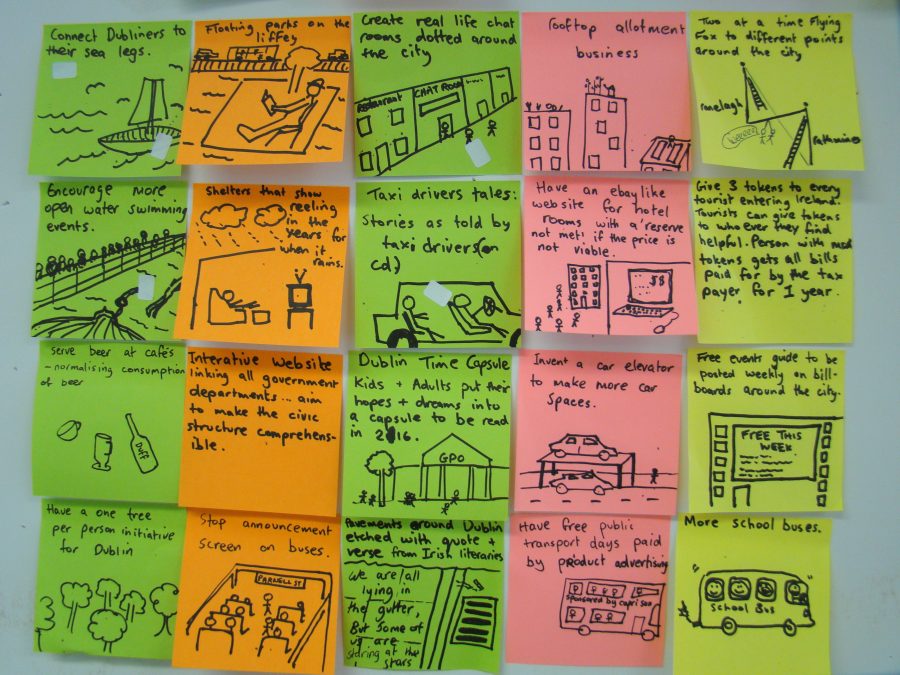 Connect Dubliners to
their sea legs.
Floating parks on the
liffey
Create real life chat
rooms dotted around
the city
Restaurant
CHAT ROOM
rooftop allotment
business
Two at a time Flying
Fox to different points
around the city
ranelagh
weeeee
rathmines
Encourage more
open water swimming
events.
Shelters that show
reeling
in the
years for
when it
rains.
Taxi drivers tales:
Stories as told by
taxi drivers (on
cd)
Have an ebay like
website for hotel
rooms with a 'reserve
not met' if the price is
not viable.
$$
Give 3 tokens to every
tourist entering Ireland.
Tourists can give tokens
to who ever they find
helpful. Person with most
tokens gets all bills
paid for by the tax
payer for 1 year.
serve beer at cafés
- normalising consumption
of beer
Duff
Interative Website
linking all government
departments... aim
to make the civic
structure comprehens-
ible.
Dublin Time Capsule
Kids + Adults put their
hopes + dreams into
a capsule to be read
in 2016.
GPO
Invent a car elevator
to make more car
spaces.
Free events guide to be
posted weekly on bill-
boards around the city.
FREE THIS
WEEK
Have a one tree
per person initiative
for Dublin
Stop announcement
screen on buses.
PARNELL ST.
Pavements around Dublin
etched with quote +
verse from Irish literaries
We are all
lying in
the gutter,
But some of
us are
staring at the
stars
Have free public
transport days paid
by product advertising
sponsored by capri sun
More school buses.
School Bus